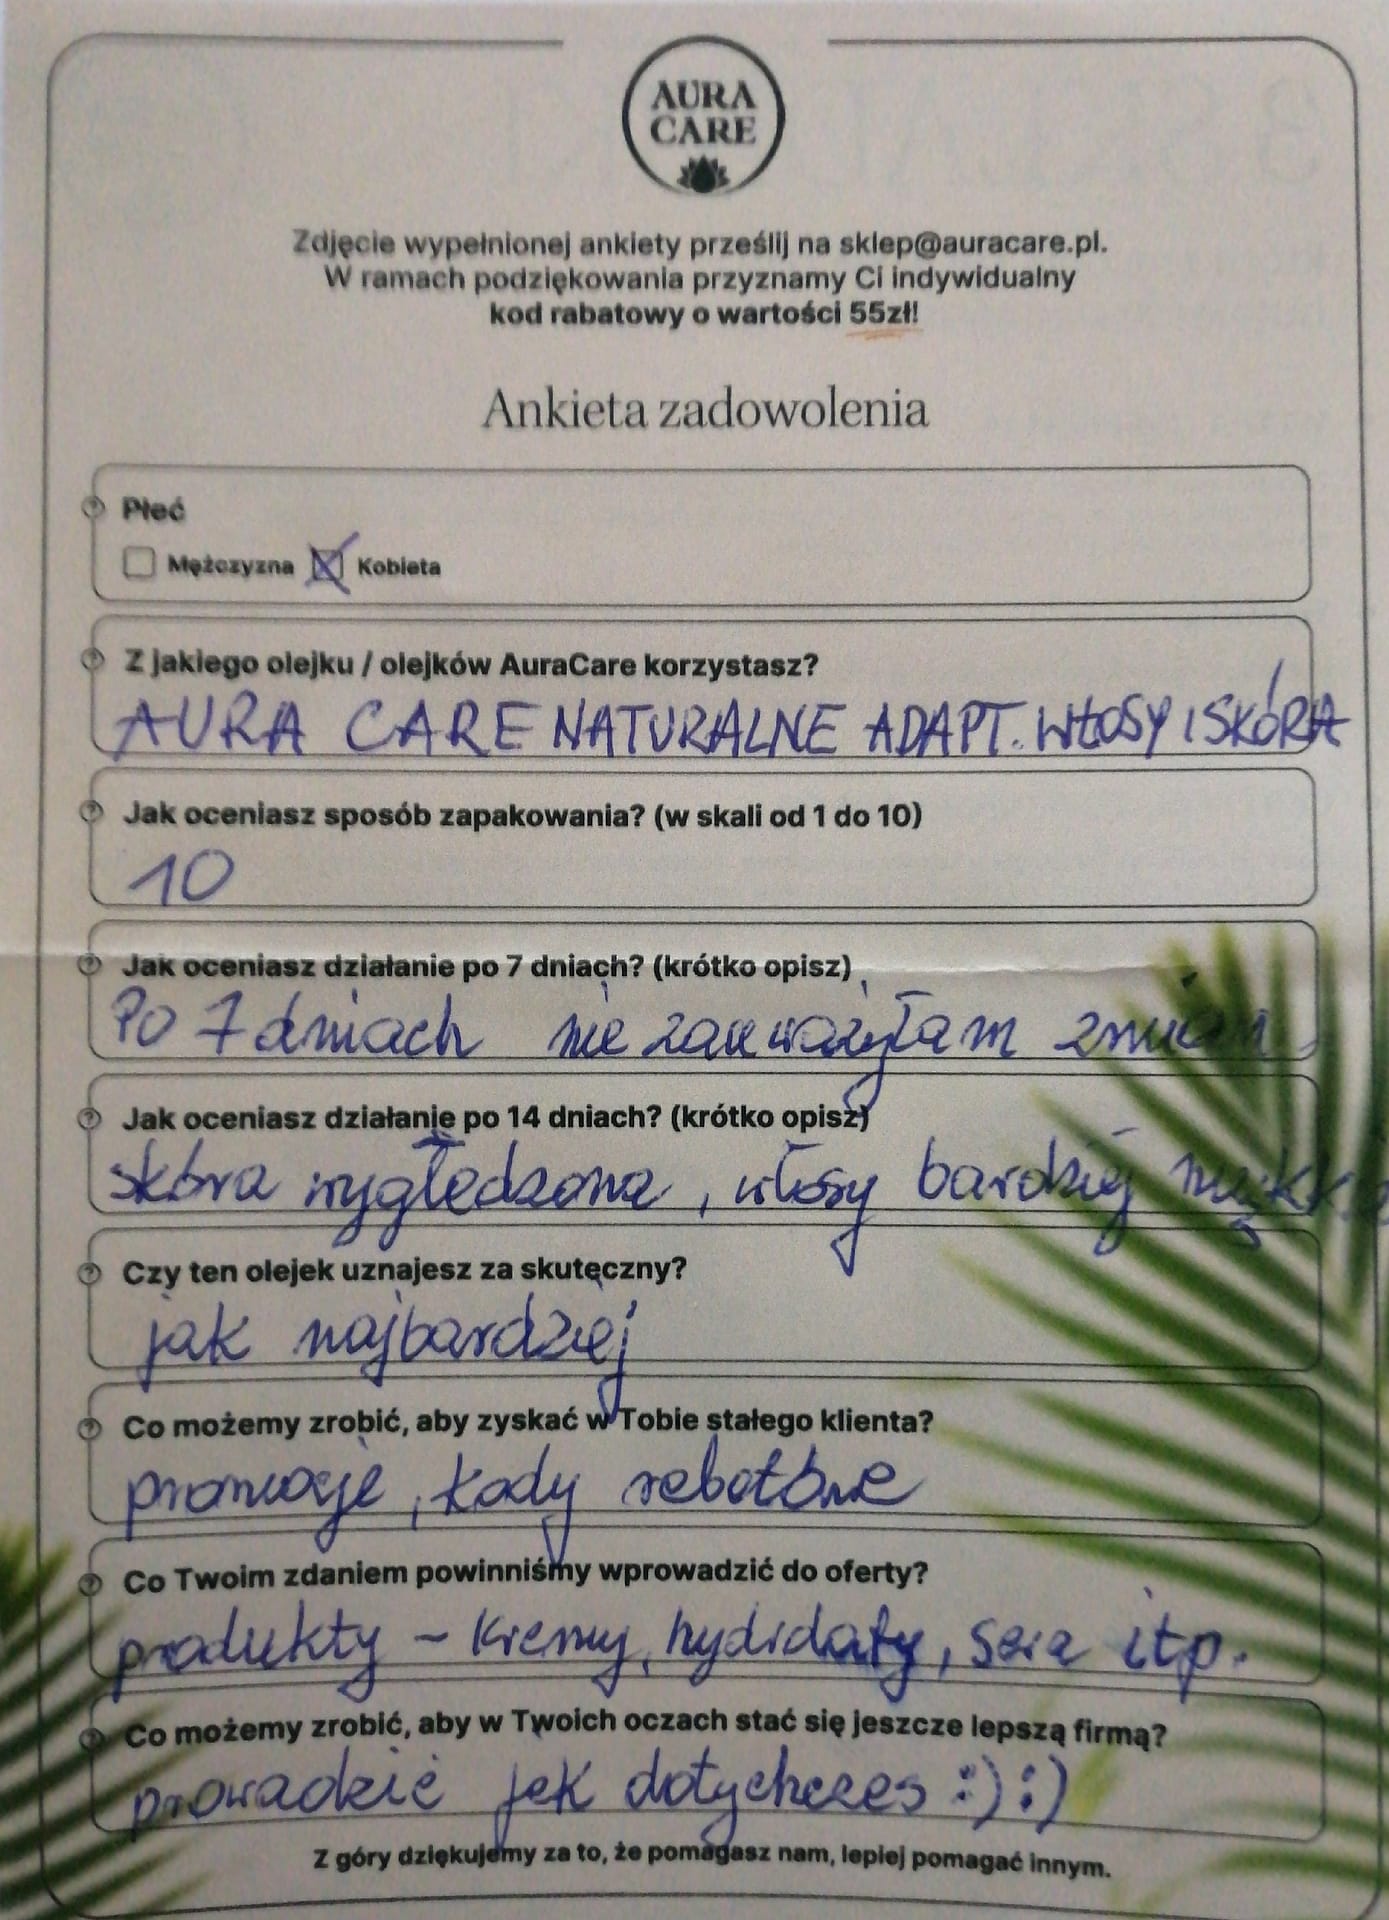 AURA
CARE
Zdjęcie wypełnionej ankiety prześlij na sklep@auracare.pl.
W ramach podziękowania przyznamy Ci indywidualny
kod rabatowy o wartości 55zł!
Ankieta zadowolenia
Płeć
Mężczyzna Kobieta
Z jakiego olejku / olejków AuraCare korzystasz?
AURA CARE NATURALNE ADAPT. WŁOSY I SKÓRA
Jak oceniasz sposób zapakowania? (w skali od 1 do 10)
10
Jak oceniasz działanie po 7 dniach? (krótko opisz)
Po 7 dniach nie zauważyłam zmian
Jak oceniasz działanie po 14 dniach? (krótko opisz)
skóra wygłedzona, włosy bardziej miękkie
Czy ten olejek uznajesz za skuteczny?
jak najbardziej
Co możemy zrobić, aby zyskać w Tobie stałego klienta?
promocje, kody rabatowe
Co Twoim zdaniem powinniśmy wprowadzić do oferty?
produkty - kremy, hydrolaty, sera itp.
Co możemy zrobić, aby w Twoich oczach stać się jeszcze lepszą firmą?
prowadzić jak dotychczas :) :)
Z góry dziękujemy za to, że pomagasz nam, lepiej pomagać innym.